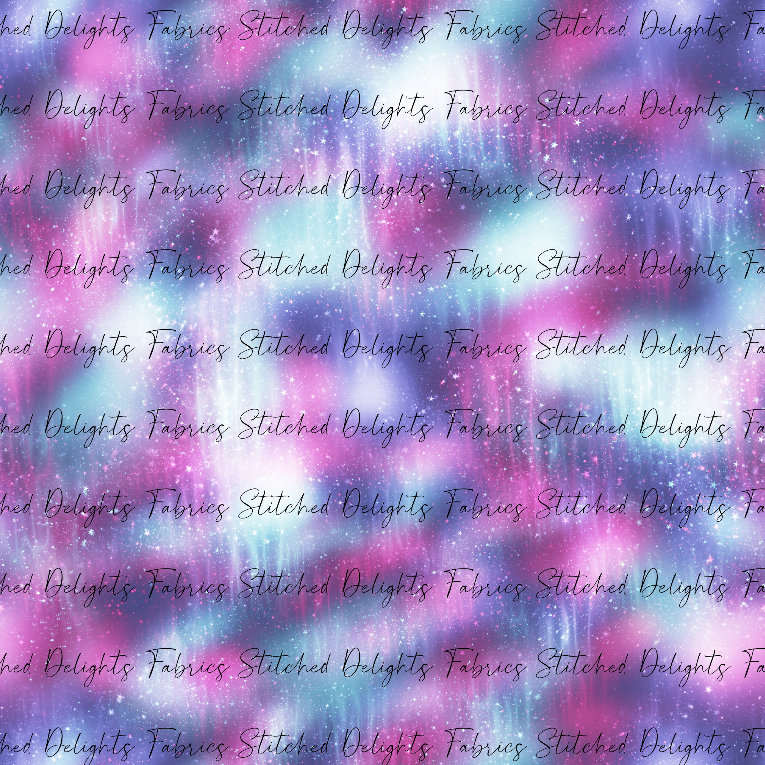 hed Delights Fabrics Stitched Delights Fabrics Stitched Delights Fa
hed Delights Fabrics Stitched Delights Fabrics Stitched Delights Fa
hed Delights Fabrics Stitched Delights Fabrics Stitched Delights Fa
hed Delights Fabrics Stitched Delights Fabrics Stitched Delights Fa
hed Delights Fabrics Stitched Delights Fabrics Stitched Delights Fa
hed Delights Fabrics Stitched Delights Fabrics Stitched Delights Fa
hed Delights Fabrics Stitched Delights Fabrics Stitched Delights Fa
hed Delights Fabrics Stitched Delights Fabrics Stitched Delights Fa
hed Delights Fabrics Stitched Delights Fabrics Stitched Delights Fa
hed Delights Fabrics Stitched Delights Fabrics Stitched Delights Fa